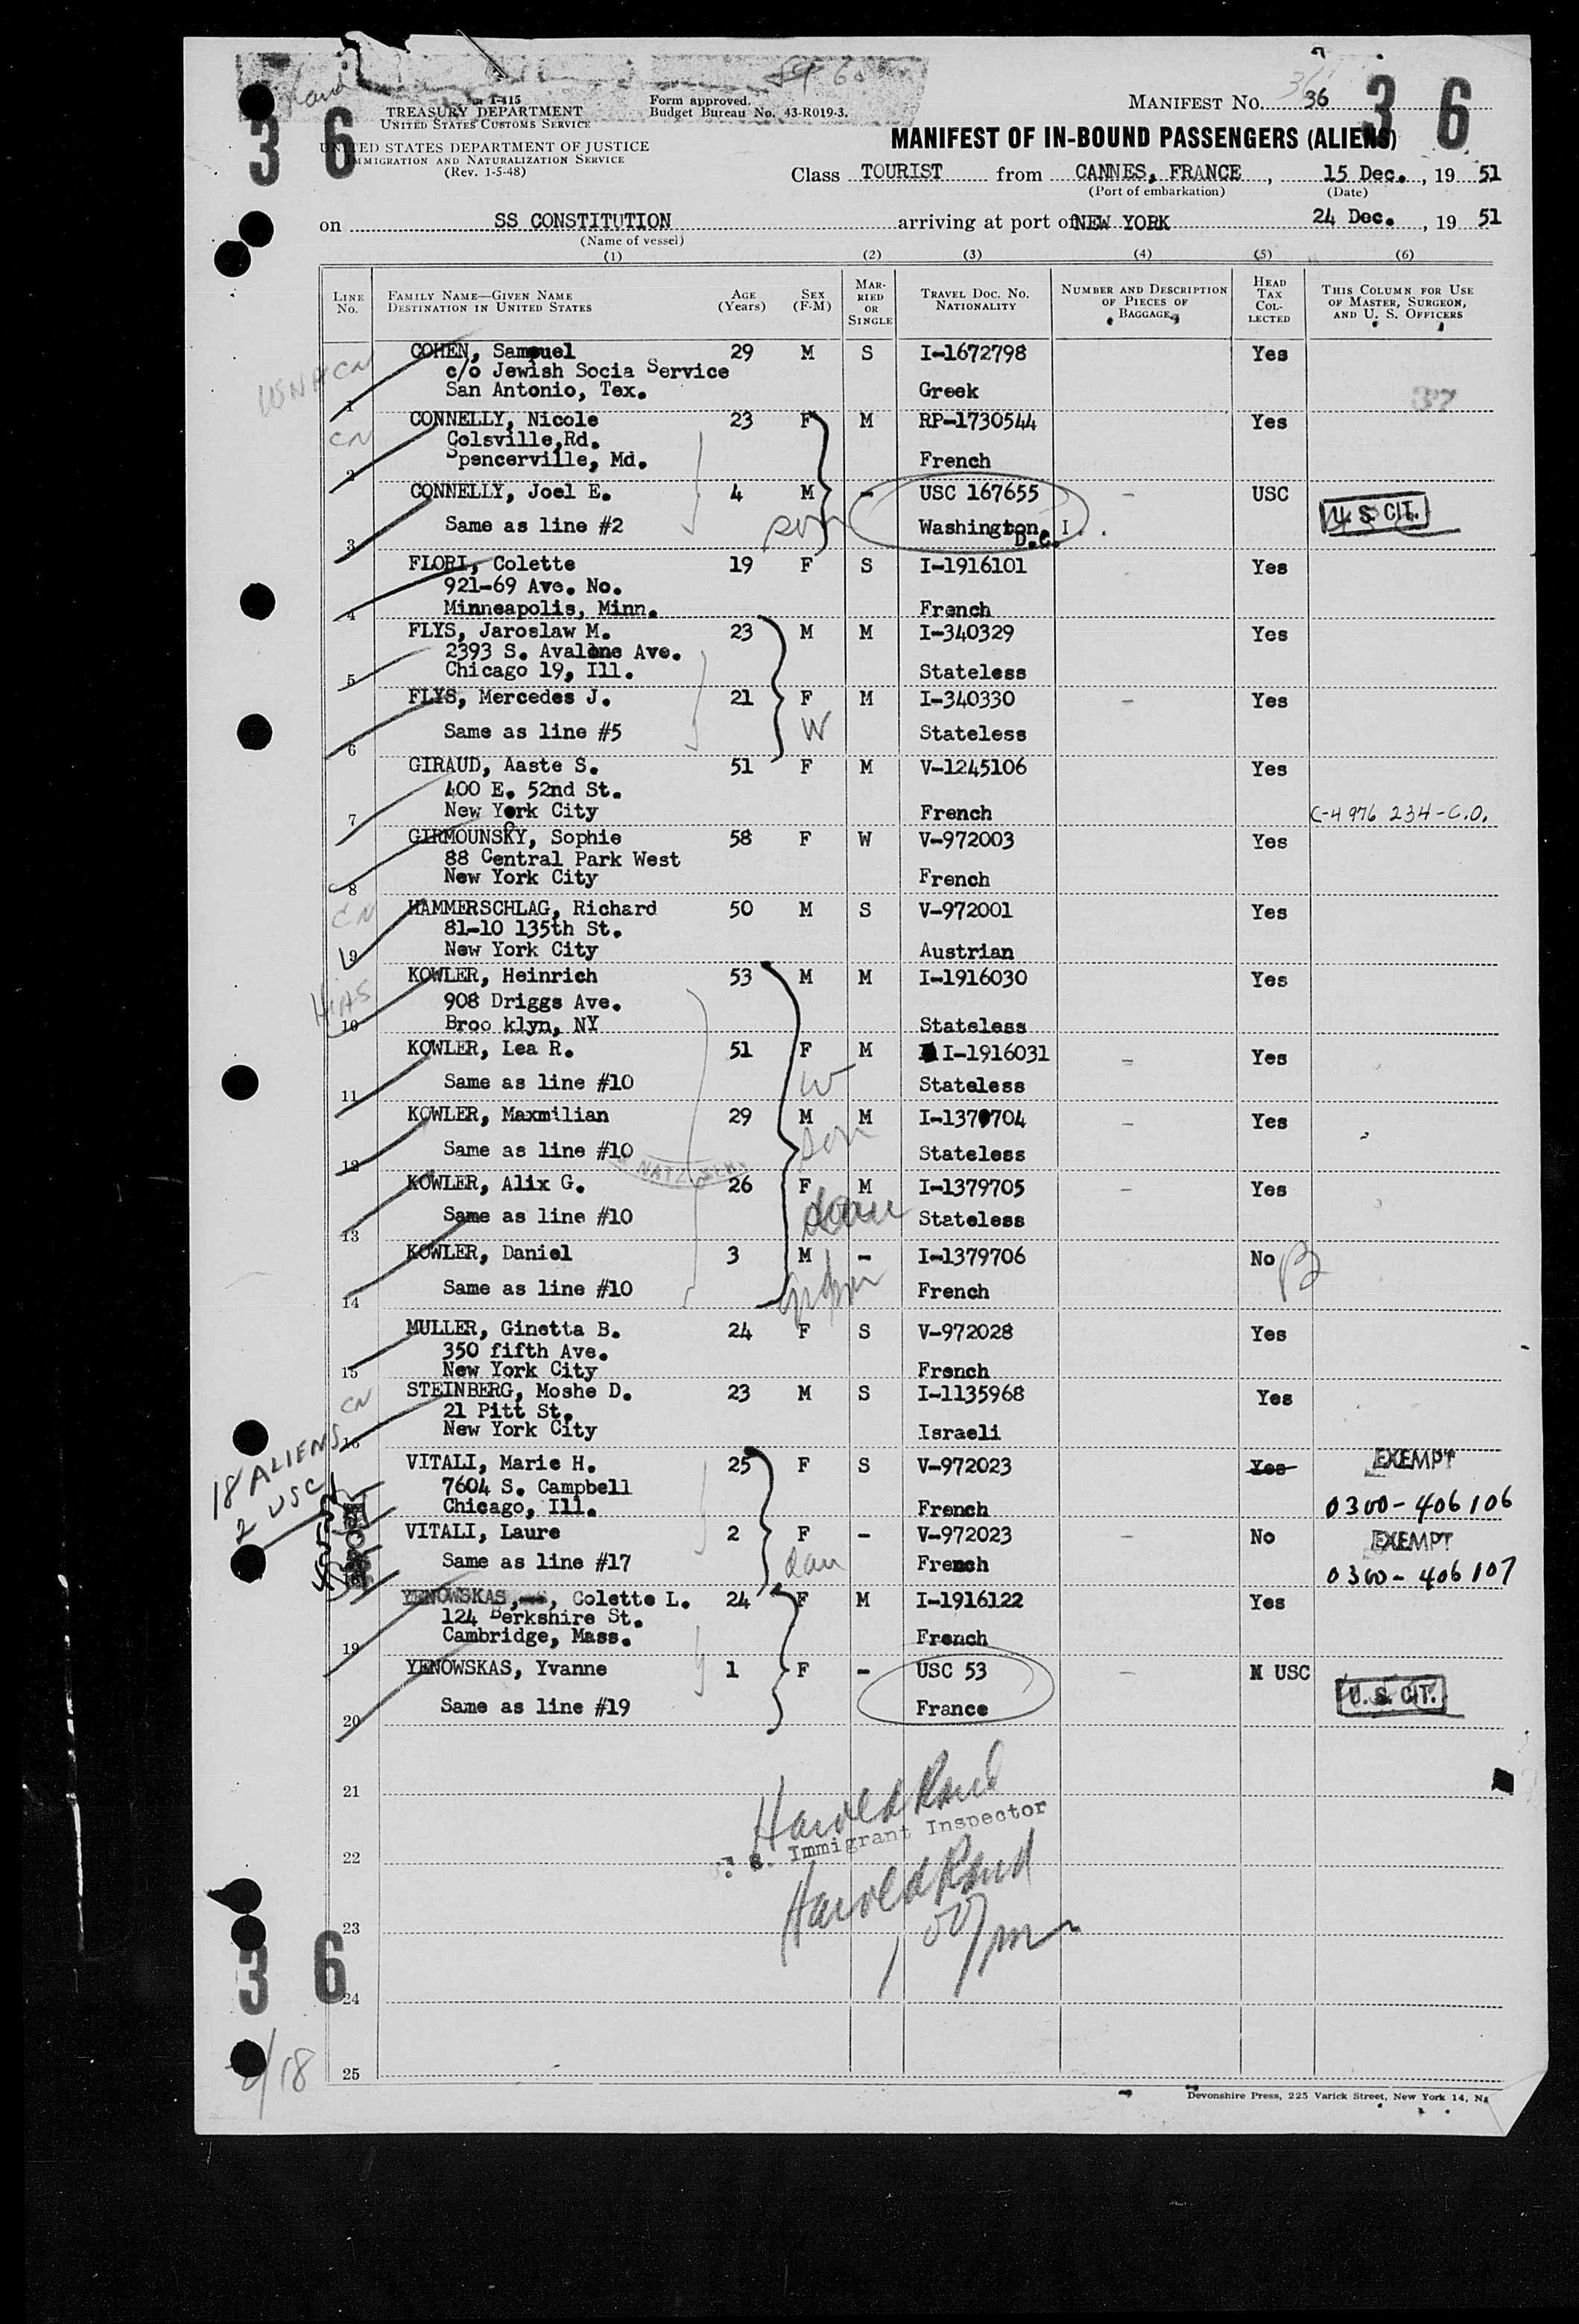 36
3 6
3 6
I-415
TREASURY DEPARTMENT
UNITED STATES CUSTOMS SERVICE
UNITED STATES DEPARTMENT OF JUSTICE
IMMIGRATION AND NATURALIZATION SERVICE
(Rev. 1-5-48)
Form approved.
Budget Bureau No. 43-R019-3.
MANIFEST NO. 36
MANIFEST OF IN-BOUND PASSENGERS (ALIENS)
Class TOURIST from CANNES, FRANCE, 15 Dec., 19 51
(Port of embarkation) (Date)
on SS CONSTITUTION arriving at port of NEW YORK 24 Dec., 19 51
(Name of vessel)
(1) (2) (3) (4) (5) (6)
LINE No. FAMILY NAME—GIVEN NAME DESTINATION IN UNITED STATES AGE (Years) SEX (F-M) MARRIED OR SINGLE TRAVEL DOC. NO. NATIONALITY NUMBER AND DESCRIPTION OF PIECES OF BAGGAGE HEAD TAX COLLECTED THIS COLUMN FOR USE OF MASTER, SURGEON, AND U. S. OFFICERS
COHEN, Samouel 29 M S I-1672798 Yes
CN
c/o Jewish Socia Service
1 San Antonio, Tex. Greek
CONNELLY, Nicole 23 F M RP-1730544 Yes
CN Colsville,Rd.
2 Spencerville, Md. French
CONNELLY, Joel E. 4 M - USC 167655 - USC
U. S. CIT.
3 Same as line #2 son Washington, D.C.
FLORI, Colette 19 F S I-1916101 Yes
921-69 Ave. No.
4 Minneapolis, Minn. French
FLYS, Jaroslaw M. 23 M M I-340329 Yes
2393 S. Avalone Ave.
5 Chicago 19, Ill. Stateless
FLYS, Mercedes J. 21 F M I-340330 - Yes
6 Same as line #5 W Stateless
GIRAUD, Aaste S. 51 F M V-1245106 Yes
400 E. 52nd St.
7 New York City French C-4976 234-C.O.
GIRMOUNSKY, Sophie 58 F W V-972003 Yes
88 Central Park West
8 New York City French
HAMMERSCHLAG, Richard 50 M S V-972001 Yes
CN 81-10 135th St.
9 New York City Austrian
KOWLER, Heinrich 53 M M I-1916030 Yes
HIAS 908 Driggs Ave.
10 Broo klyn, NY Stateless
KOWLER, Lea R. 51 F M I-1916031 - Yes
11 Same as line #10 W Stateless
KOWLER, Maxmilian 29 M M I-1379704 - Yes
12 Same as line #10 son Stateless
KOWLER, Alix G. 26 F M I-1379705 - Yes
13 Same as line #10 Stateless
KOWLER, Daniel 3 M - I-1379706 No
14 Same as line #10 French
MULLER, Ginetta B. 24 F S V-972028 Yes
350 fifth Ave.
15 New York City French
STEINBERG, Moshe D. 23 M S I-1135968 Yes
CN 21 Pitt St.
16 New York City Israeli
18 ALIENS
2 USC
VITALI, Marie H. 25 F S V-972023 Yes EXEMPT
7604 S. Campbell
Chicago, Ill. French 0300-406106
VITALI, Laure 2 F - V-972023 - No EXEMPT
Same as line #17 dau French 0300-406107
YENOWSKAS, Colette L. 24 F M I-1916122 Yes
124 Berkshire St.
19 Cambridge, Mass. French
YENOWSKAS, Yvanne 1 F - USC 53 - N USC
U. S. CIT.
20 Same as line #19 France
21
Harold Rand
Immigrant Inspector
22
Harold Rand
23
3 6
24
25
Devonshire Press, 225 Varick Street, New York 14, N.